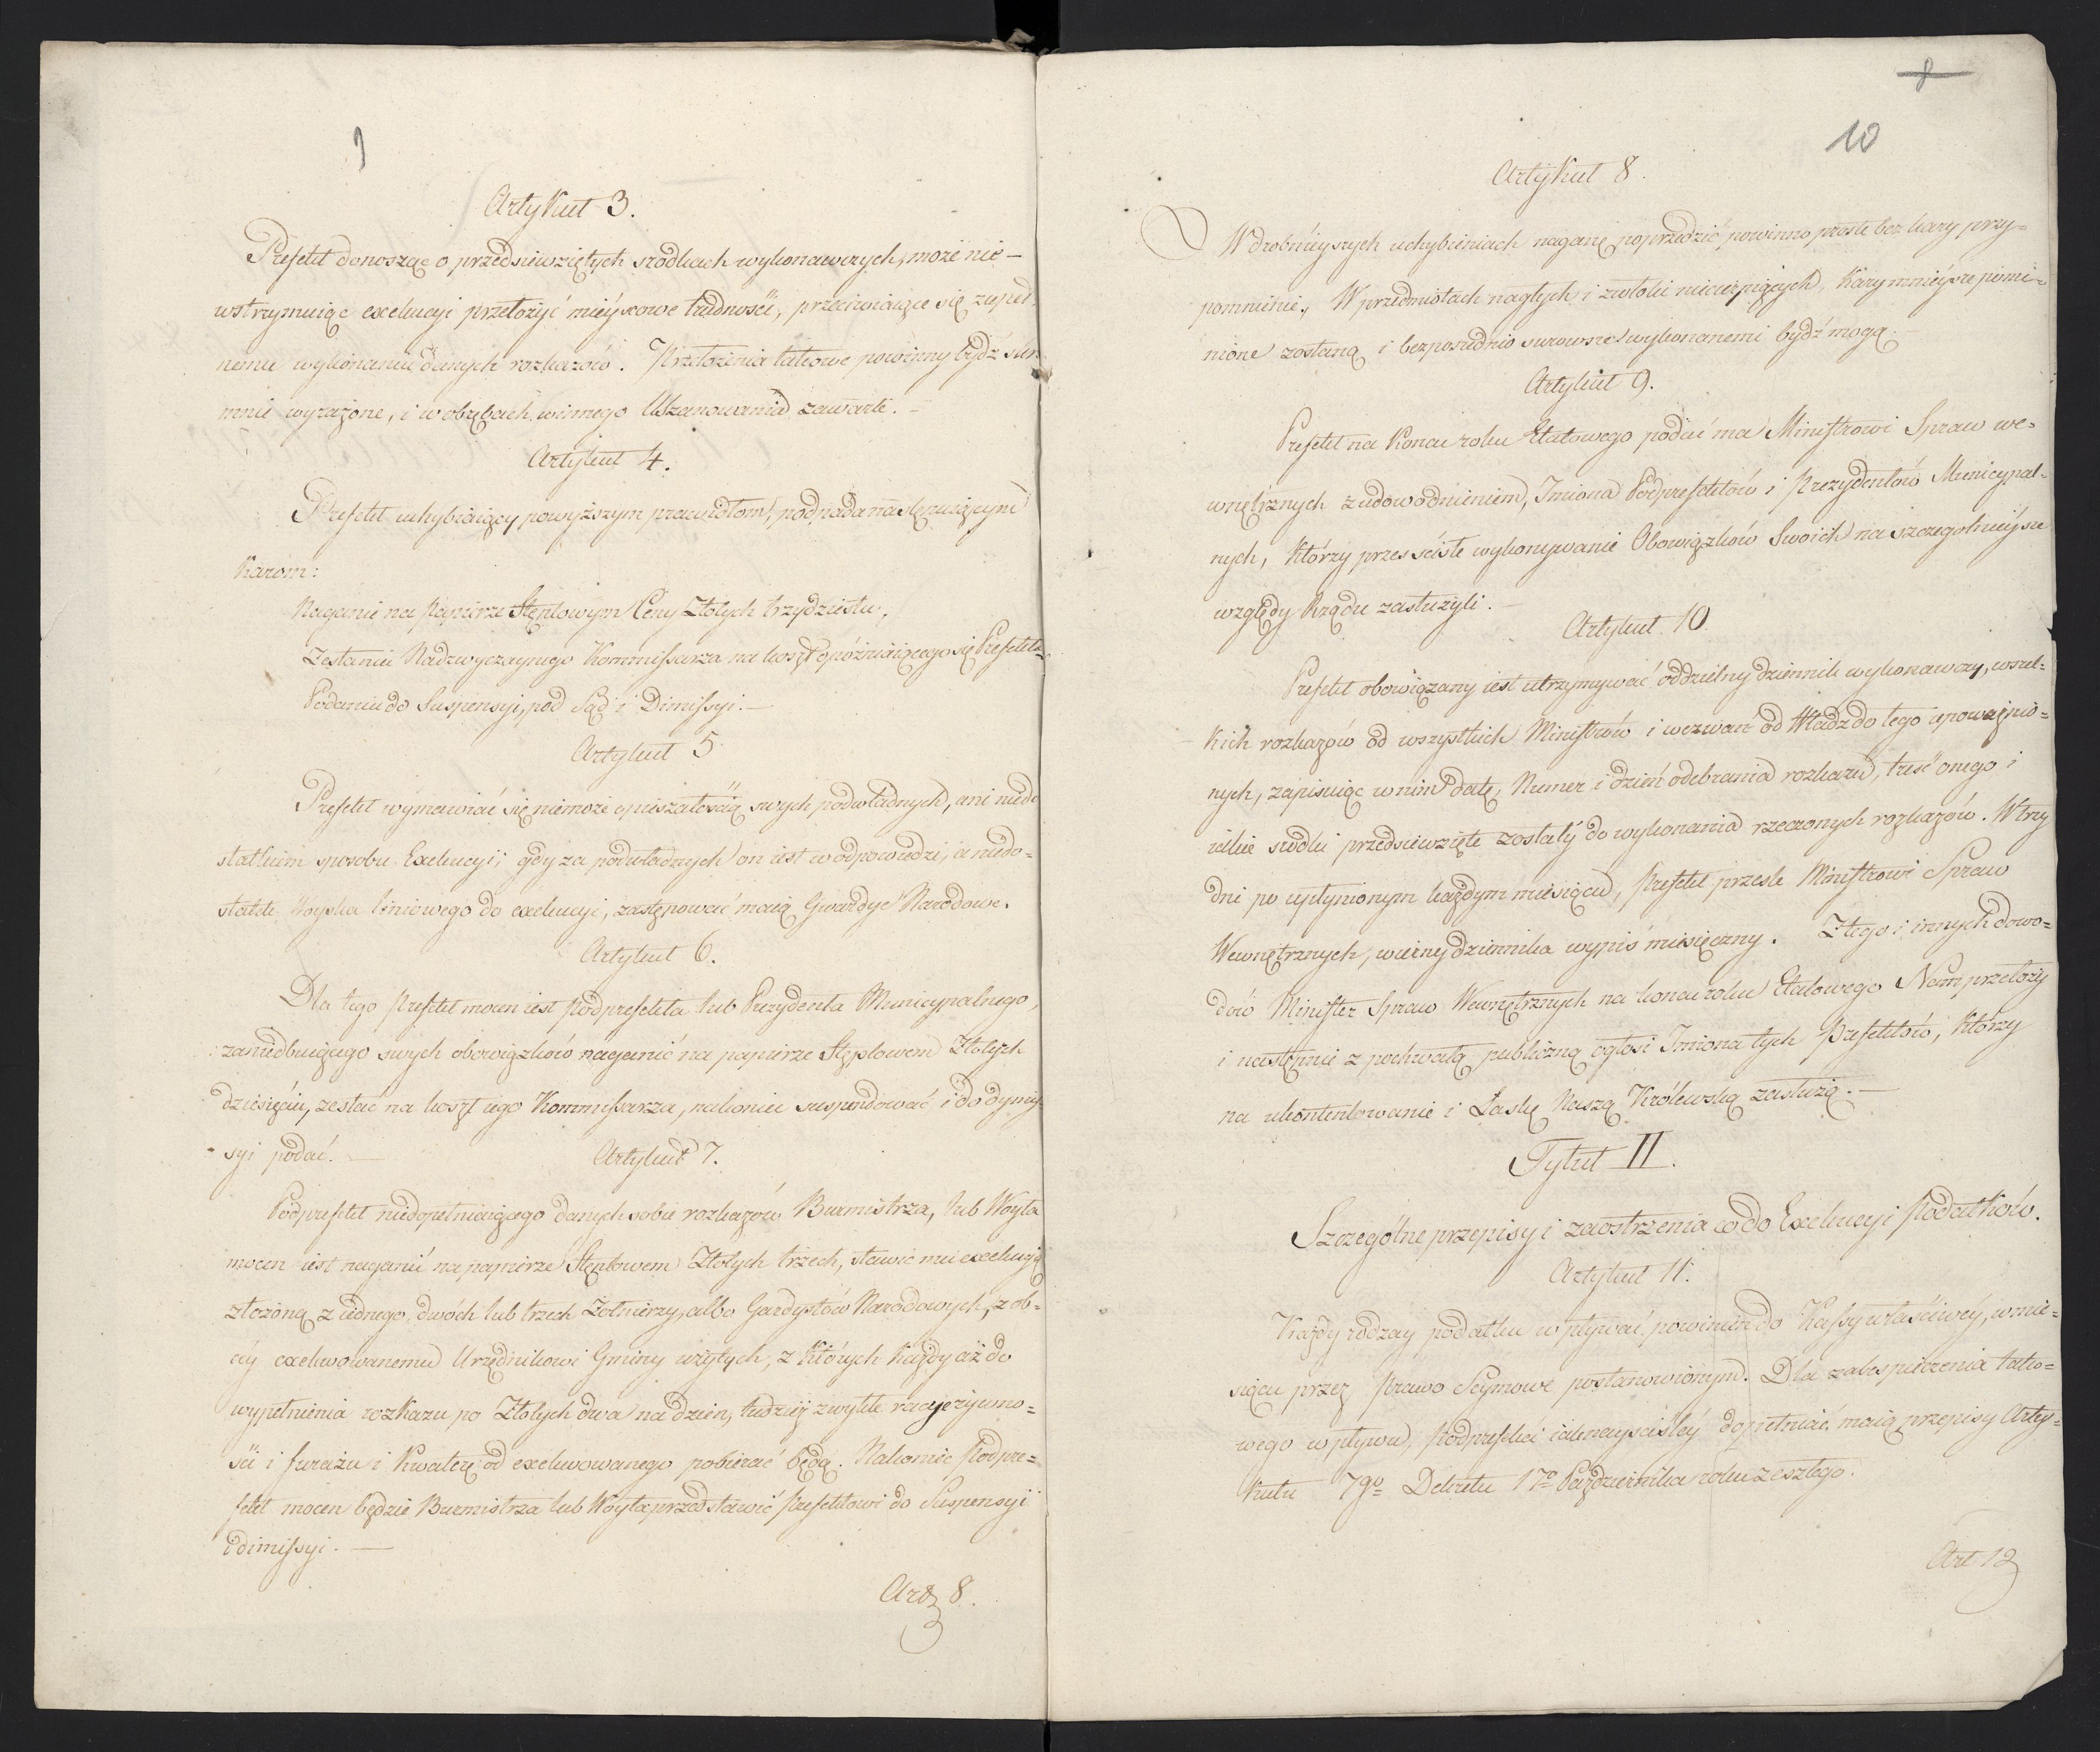 9
Artykuł 3.
Prefekt donosząc o przedsiewziętych srodkach wykonawczych, może nie —
wstrzymuiąc exekucyi przełożyć mieyscowe trudności, przeciwiaiące się zupeł
nemu wykonaniu danych rozkazów. Przełożenia takowe powinny bydź sum
mnie wyrażone, i w obrębach winnego Uszanowania zawarte. —
Artykuł 4.
Prefekt uchybiaiący powyższym prawidłom, podpada następuiącym
Karom:
Naganie na papierze Stęplowym Ceny Złotych trzydziestu,
Zesłaniu Nadzwyczaynego Kommissarza na koszt opóźniaiącego się Prefekta
Podaniu do Suspensyi, pod Sąd i Dimissyi. —
Artykuł 5
Prefekt wymawiać się niemoże opieszałością swych podwładnych, ani niedo
statkiem sposobu Exekucyi; gdy za podwładnych on iest w odpowiedzi, a niedo=
statek Woyska liniowego do exekucyi, zastępować maią Gwardye Narodowe.
Artykuł 6.
Dla tego Prefekt mocen iest Podprefekta lub Prezydenta Municypalnego,
zaniedbuiącego swych obowiązków naganić na papierze Stęplowem Złotych
dziesięciu, zesłać na koszt iego Kommissarza, nakoniec suspendować i do dymis
syi podać. —
Artykuł 7.
Podprefekt niedopełniaiącego danych sobie rozkazów Burmistrza, lub Woyta
mocen iest naganić na papierze Stęplowem Złotych trzech, stawić mu exekucyą
złożoną z iednego, dwóch lub trzech Żołnierzy, albo Gardystów Narodowych, z ob=
cey exekwowanemu Urzędnikowi Gminy użytych, z których każdy aż do
wypełnienia rozkazu po Złotych dwa na dzień, tudzież zwykłe racye żywno=
ści i furażu i Kwaterę od exekwowanego pobierać będą. Nakoniec Podpre=
fekt mocen będzie Burmistrza lub Woyta przedstawić Prefektowi do Suspensyi
i dimissyi. —
Art 8.
8
10
Artykuł 8.
W drobnieyszych uchybieniach naganę poprzedzić powinno proste bez kary przy=
pomnienie, W przedmiotach nagłych i zwłoki niecierpiących, Kary mnieysze pomi=
nione zostaną i bezpośrednio surowsze wykonanemi bydź mogą. —
Artykuł 9.
Prefekt na Końcu roku Etatowego podać ma Ministrowi Spraw we=
wnętrznych z udowodnieniem, Imiona Podprefektów i Prezydentów Municypal=
nych, Którzy przez ściśle wykonywanie Obowiązków Swoich na szczegolnieysze
względy Rządu zasłużyli. —
Artykuł 10
Prefekt obowiązany iest utrzymywać oddzielny dziennik wykonawczy, wszel=
kich rozkazów od wszystkich Ministrów i wezwań od Władz do tego upoważnio=
nych, zapisuiąc w nim datę, Numer i dzień odebrania rozkazu, treść onego i
iakie środki przedsiewzięte zostały do wykonania rzeczonych rozkazów. W trzy
dni po upłynionym każdym miesiącu, Prefekt prześle Ministrowi Spraw
Wewnętrznych, wierny dziennika wypis miesięczny. Z tego i innych dowo=
dów Minister Spraw Wewnętrznych na końcu roku Etatowego Nam przełoży
i następnie z pochwałą publiczną ogłosi Imiona tych Prefektów, Którzy
na ukontentowanie i Łaskę Naszą Królewską zasłużą. —
Tytuł II.
Szczególne przepisy i zaostrzenia co do Exekucyi Podatków.
Artykuł 11.
Każdy rodzay podatku wpływać powinien do Kassy właściwey, w mie=
siącu przez Prawo Seymowe postanowionym. Dla zabespieczenia tako=
wego wpływu, Podprefekci iak nayściśley dopełniać maią przepisy Arty=
kułu 79º Dekretu 17º Października roku zeszłego.
Art 12